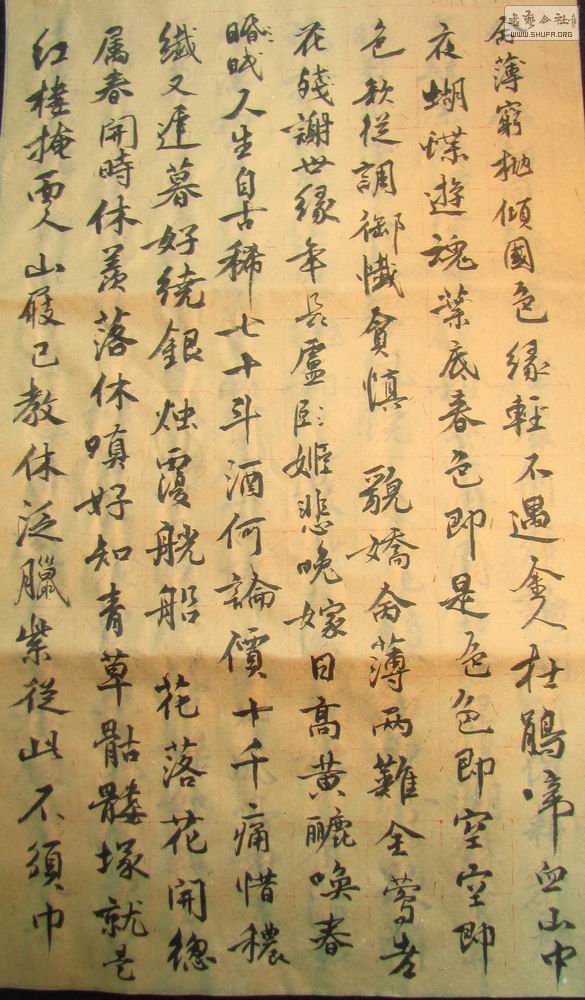 書藝公社
WWW.SHUFA.ORG
命薄窮抛傾國色緣輕不遇金人杜鵑啼血山中
夜蝴蝶遊魂葉底春色即是色色即空空即
色欲從調御懺貪慎 貌嬌命薄兩難全鶯老
花殘謝世緣年長盧姬悲晚嫁日高黃鸝喚春
眠人生自古稀七十斗酒何論價十千痛惜穠
纖又遲暮好繞銀燭覆觥船 花落花開總
屬春開時休羨落休嗔好知青草骷髏塚就是
紅樓掩面人山屐已教休泛臘柴從此不須巾